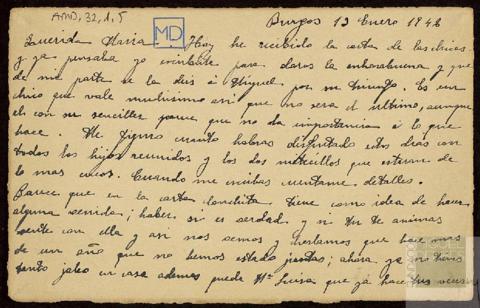 AMD, 32, 1, 5
MD
Burgos 13 Enero 1946
Querida Maria: Hoy he recibido la carta de las chicas
y ya pensaba yo escribirte para daros la enhorabuena y que
de mi parte se la deis á Miguel por su triunfo. Es un
chico que vale muchisimo asi que no sera el ultimo, aunque
el con su sencillez parece que no da importancia á lo que
hace. Me figuro cuanto habras disfrutado estos dias con
todos los hijos reunidos y los dos nietecillos que estaran de
lo mas ricos. Cuando me escribas cuentame detalles.
Parece que en la carta Conchita tiene como idea de hacer
alguna venida; haber si es verdad y si tu te animas
vente con ella y asi nos vemos y charlamos que hace mas
de un año que no hemos estado juntas; ahora ya no tienes
tanto jaleo en casa ademas puede Mª Luisa que ya hace las veces